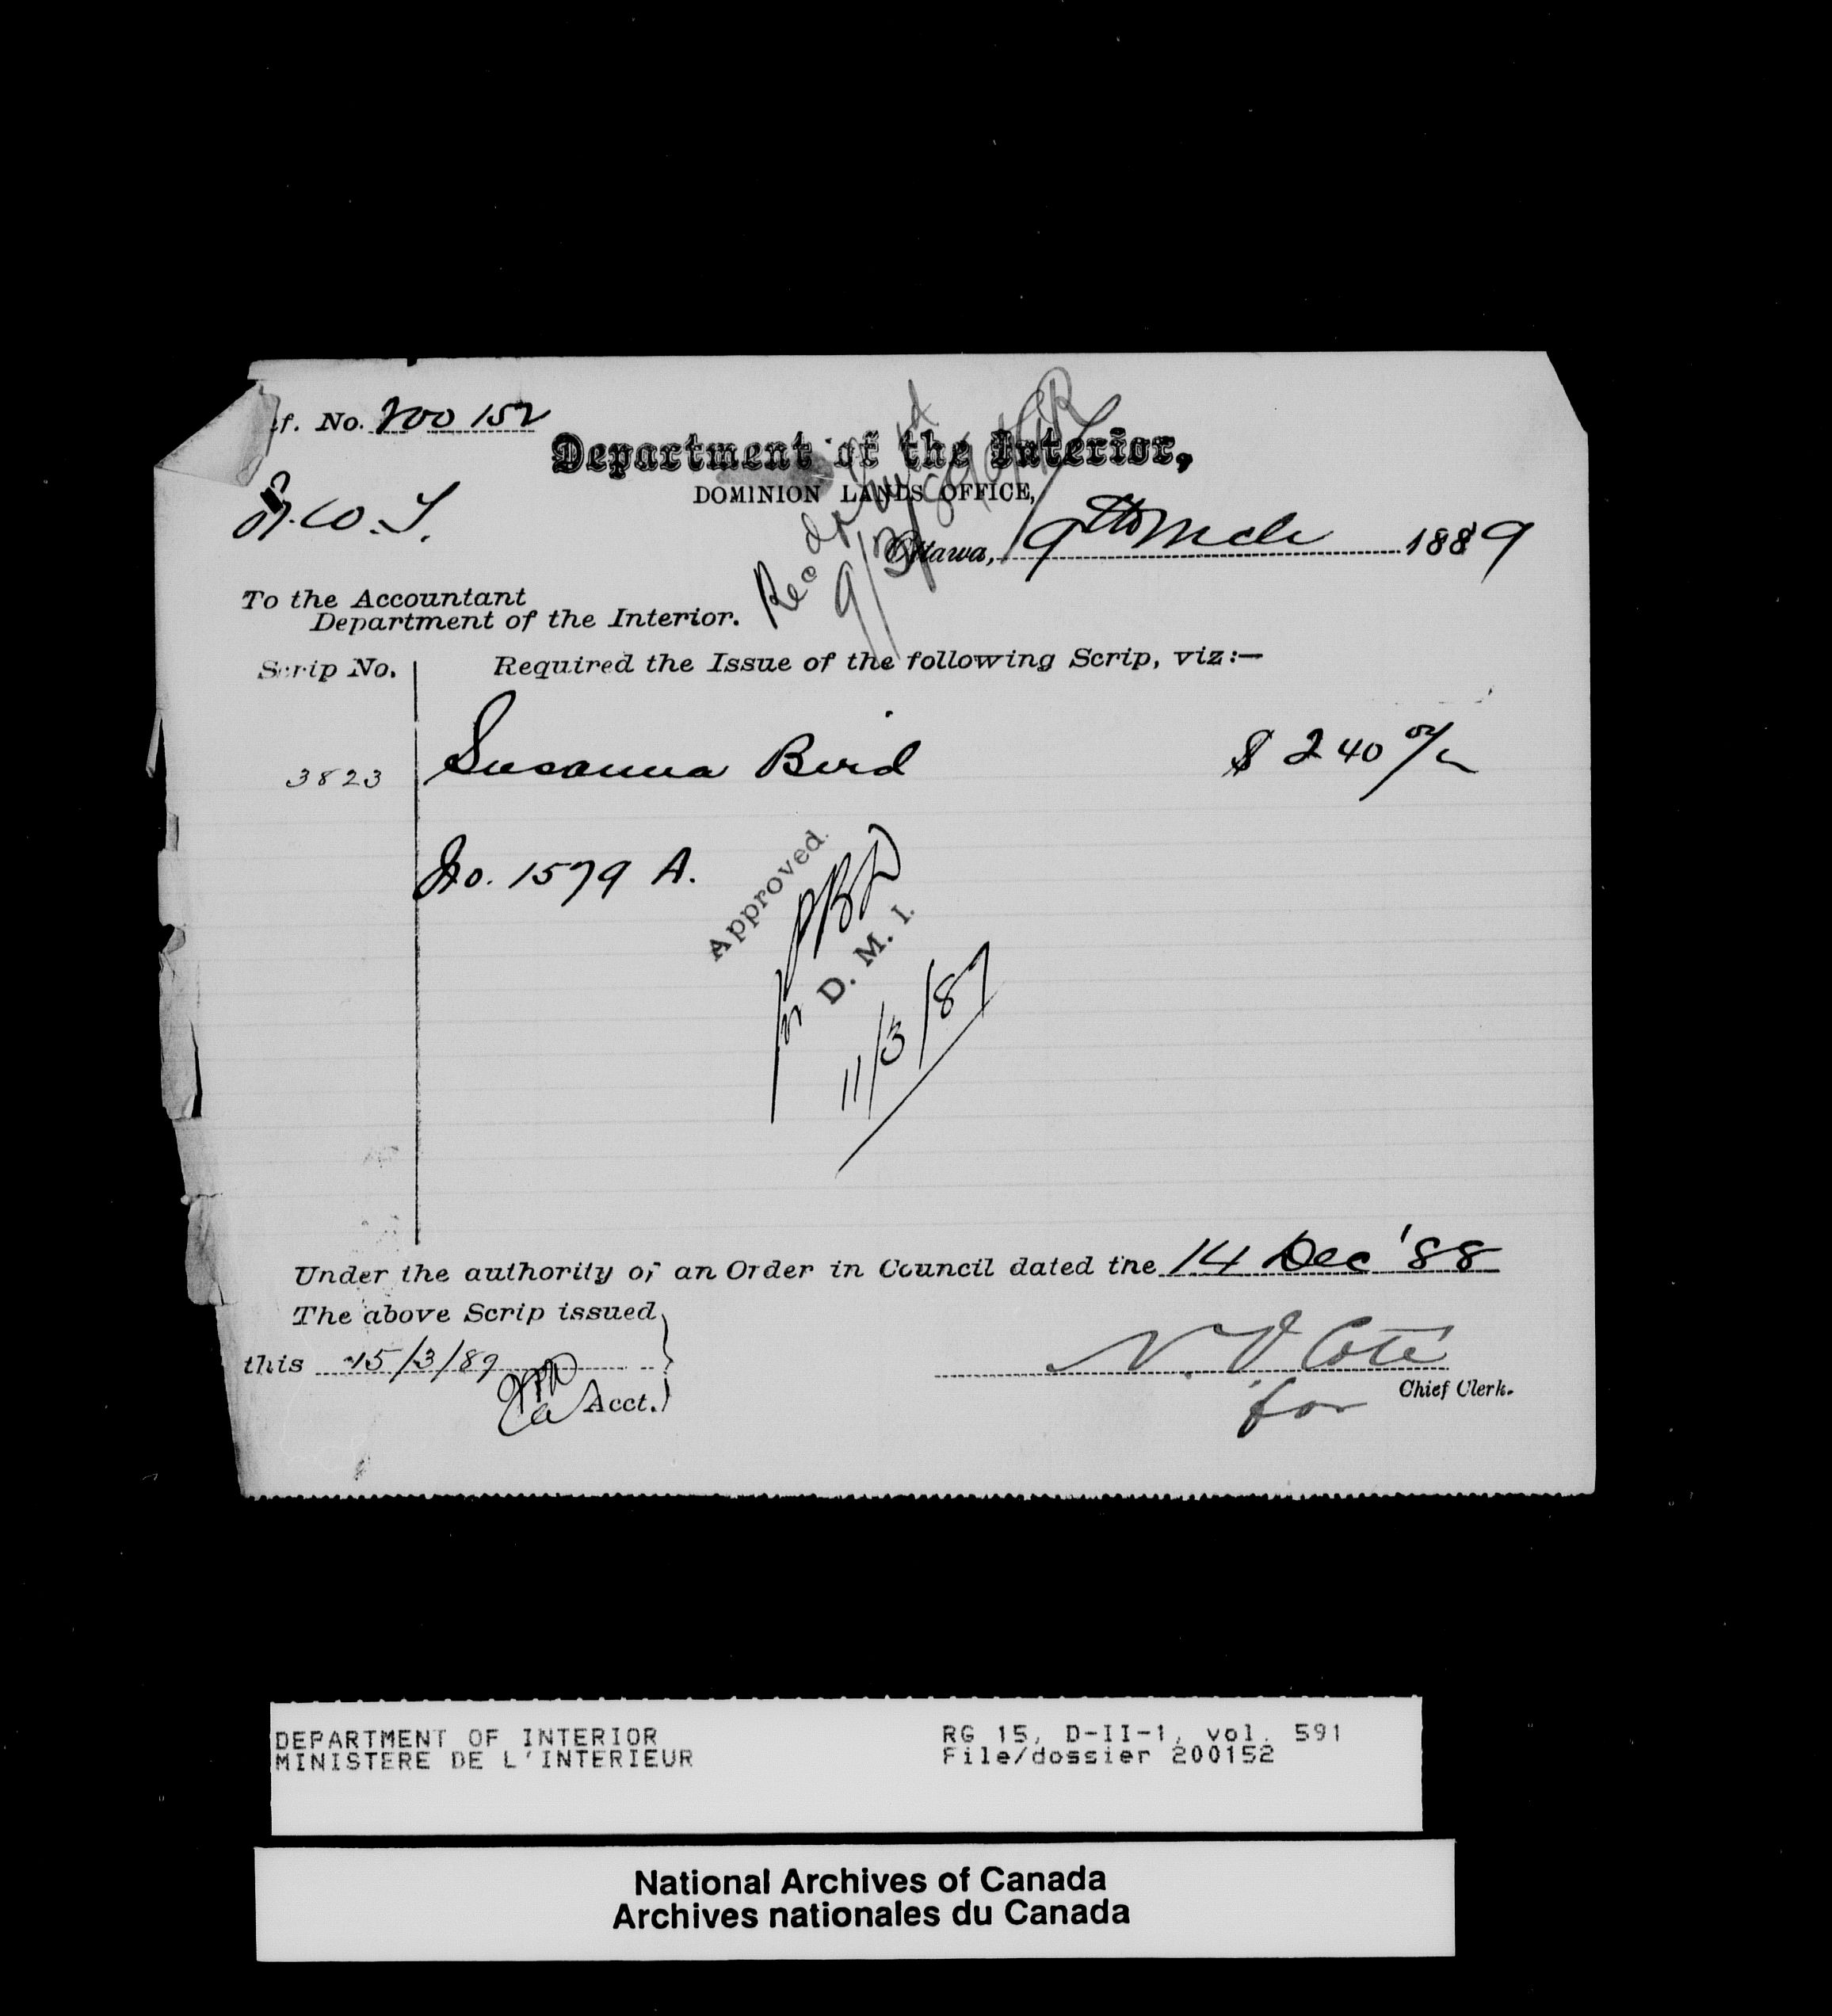 ef. No. 200152
Department of the Interior,
DOMINION LANDS OFFICE,
N.W.T.
Ottawa, 9th Mch 1889
Recd
9/3/89
To the Accountant
Department of the Interior.
Scrip No. Required the Issue of the following Scrip, viz:—
3823 Susanna Bird $240 00/
No. 1579 A.
Approved.
for
D. M. I.
11/3/89
Under the authority of an Order in Council dated the 14 Dec '88
The above Scrip issued
this 15/3/89
Acct.
N. O. Coté
for Chief Clerk.
DEPARTMENT OF INTERIOR
MINISTERE DE L'INTERIEUR
RG 15, D-II-1, vol. 591
File/dossier 200152
National Archives of Canada
Archives nationales du Canada